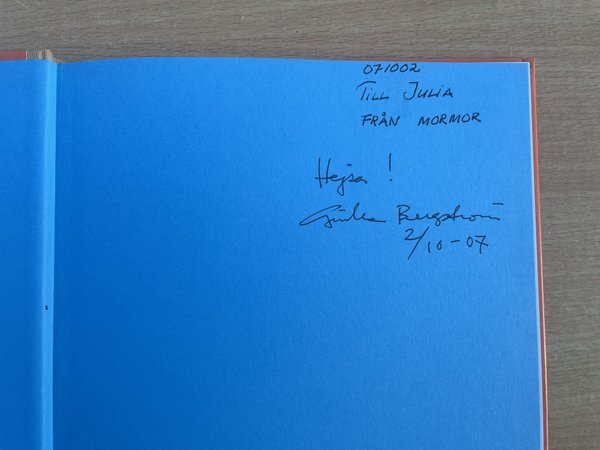 071002
TILL JULIA
FRÅN MORMOR
Hejsa !
Gunilla Bergström
2/10-07